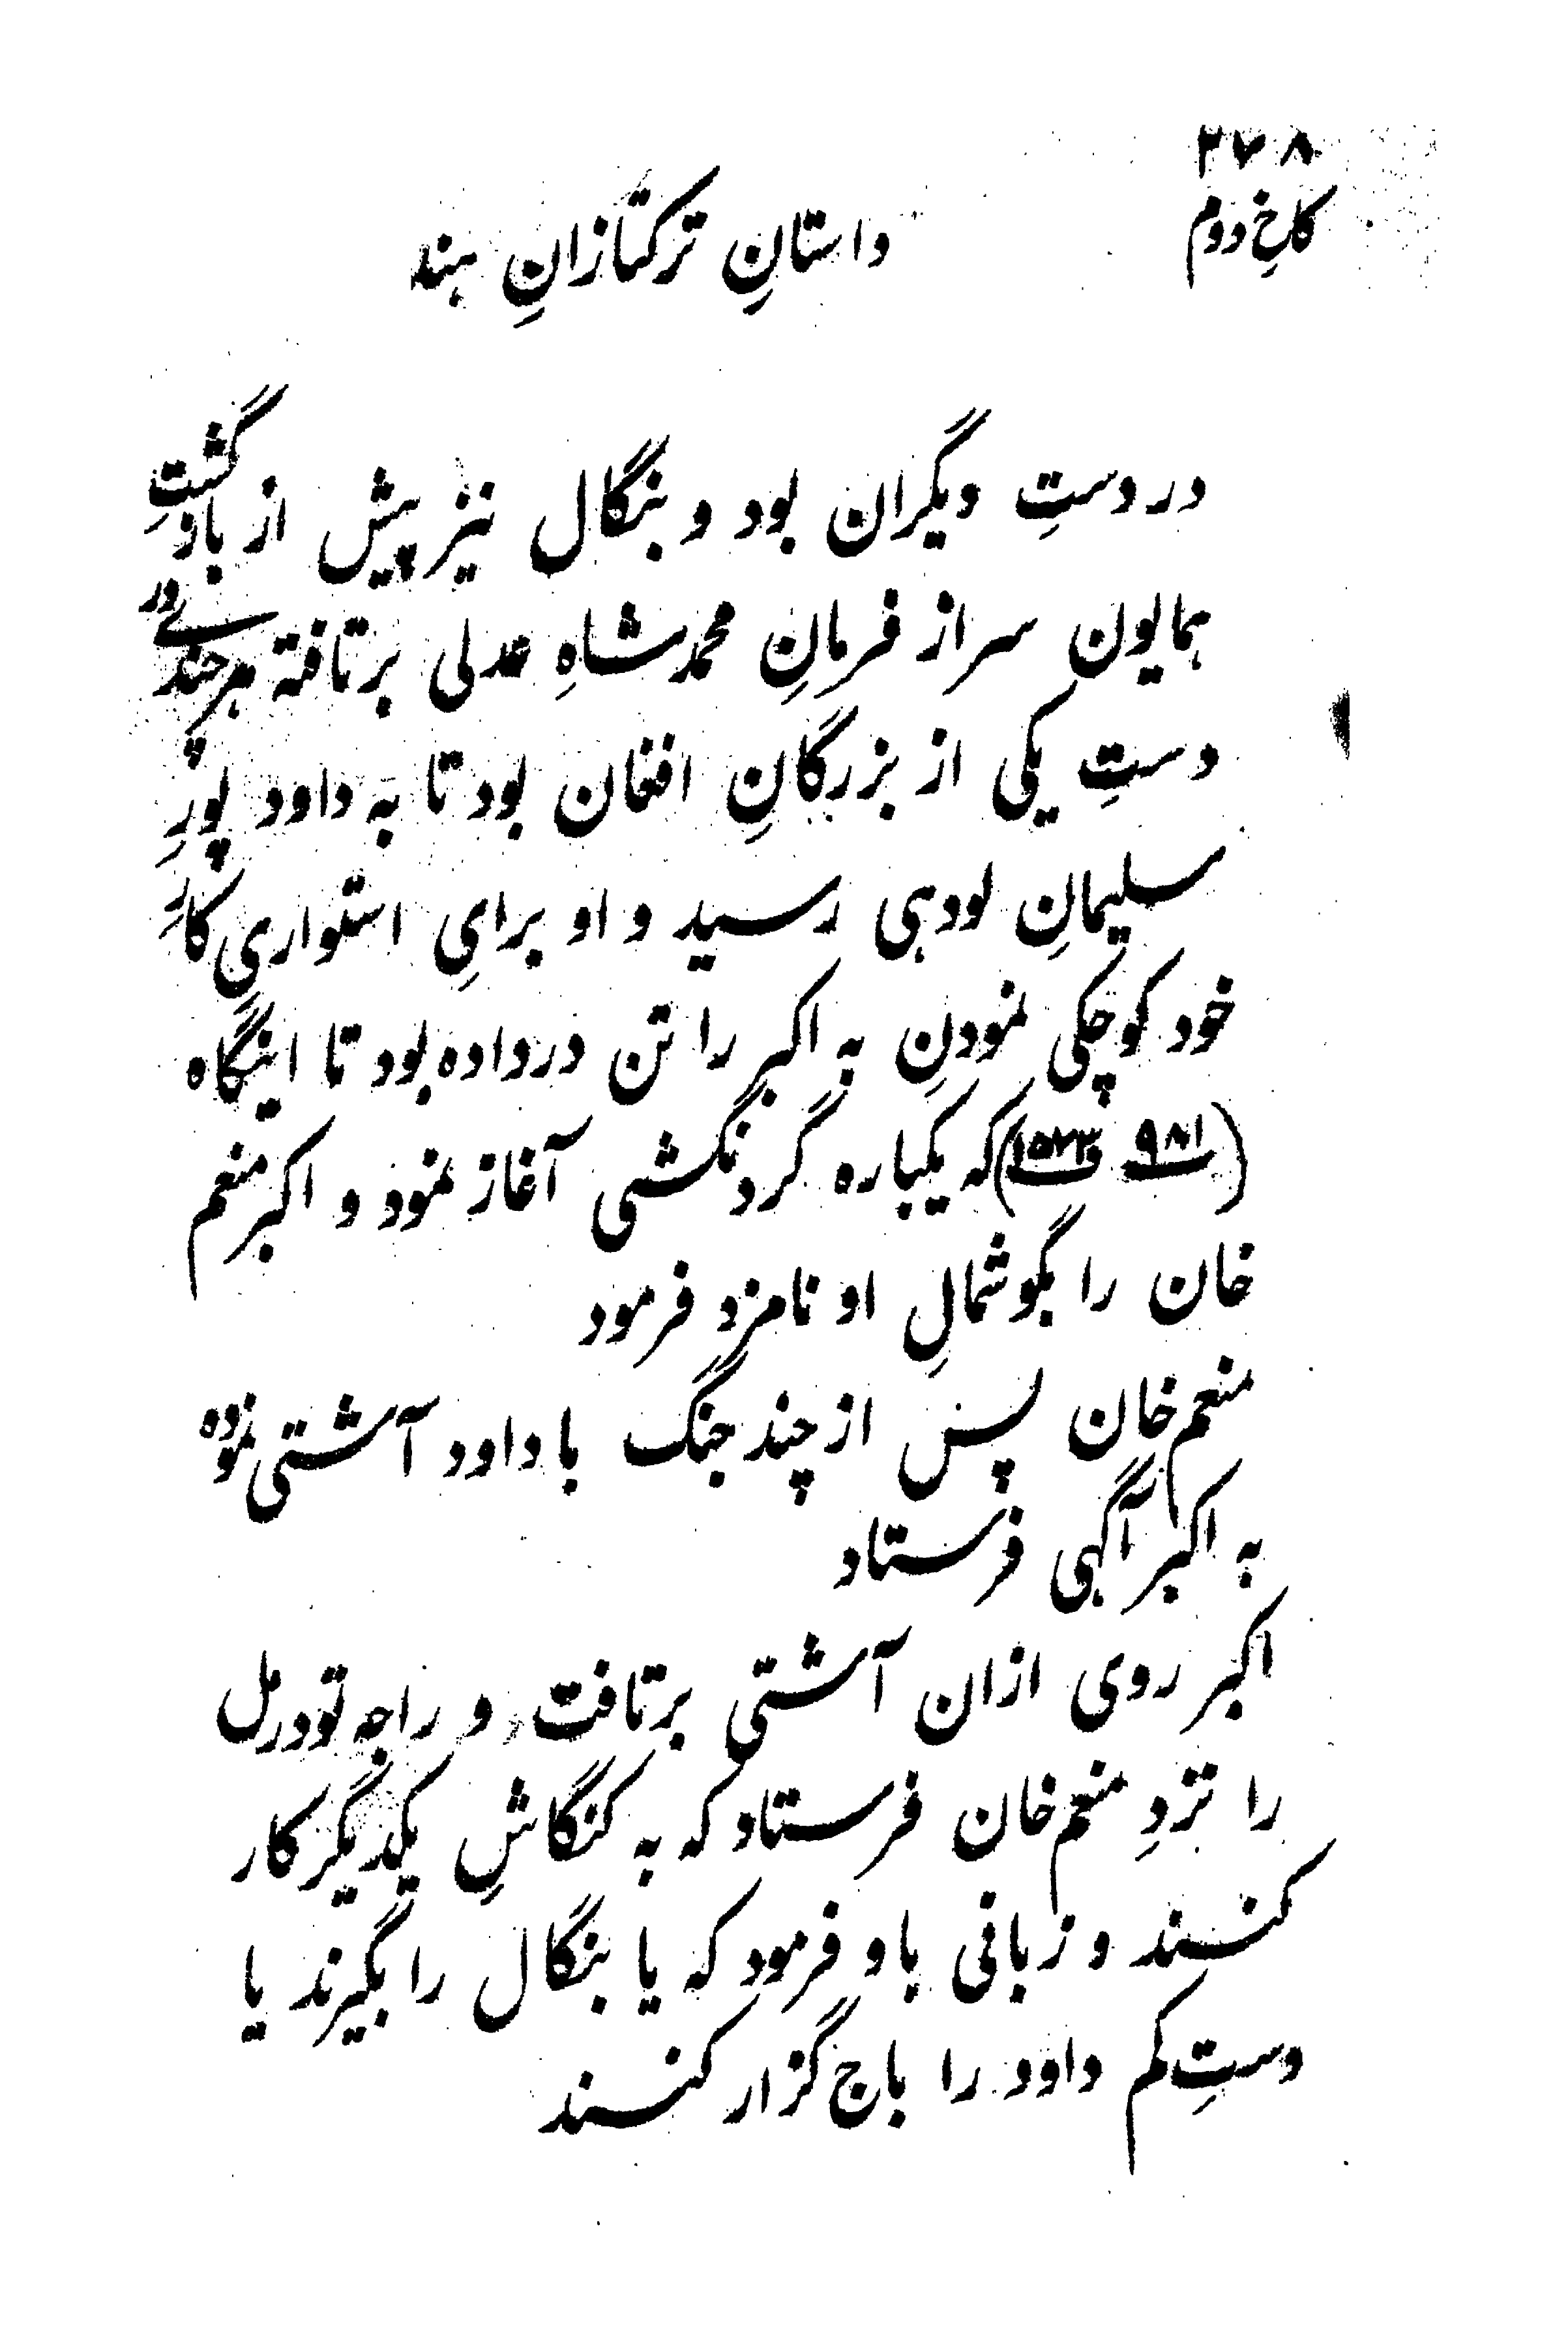 ۲۷۸
کاخِ دوم
داستانِ ترکتازانِ هند
در دستِ دیگران بود و بنگال نیز پیش از بازگشتِ
همایون سر از فرمانِ محمدشاهِ عدلی برتافته هرچندے در
دستِ یکی از بزرگانِ افغان بود تا به داود پورِ
سلیمانِ لودهی رسید و او برایِ استواری کارِ
خود کوچکی نمودنِ به اکبر را تن درداده بود تا اینگاه
(۹۸۱ ۱۵۷۳) که یکباره گردنکشی آغاز نمود و اکبر منعم
خان را بگوشمالِ او نامزد فرمود
منعم خان پس از چند جنگ با داود آشتی نموده
به اکبر آگهی فرستاد
اکبر روی ازان آشتی برتافت و راجه تودرمل
را نزدِ منعم خان فرستاد که به کنگاشِ یکدیگر کار
کنند و زبانی باو فرمود که یا بنگال را بگیرند یا
دستِ کم داود را باج گزار کنند